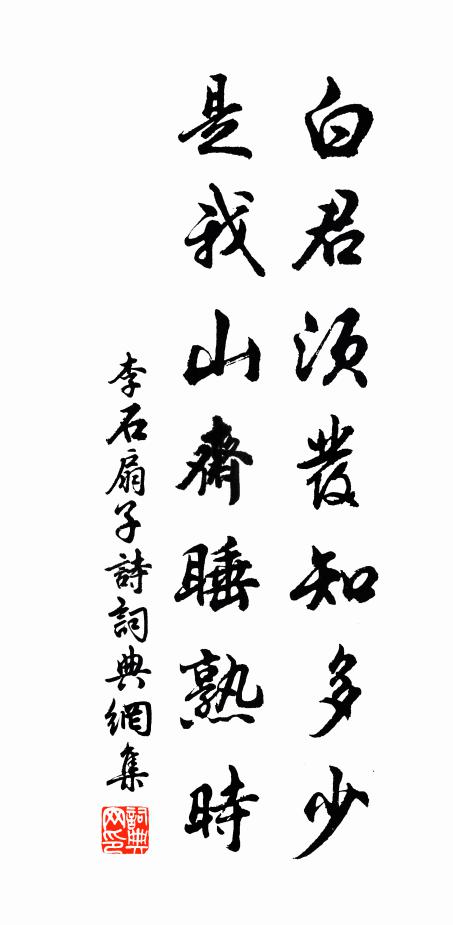 白君須發知多少
是我山齋睡熟時
李石扇子詩詞典網集
詞典网印